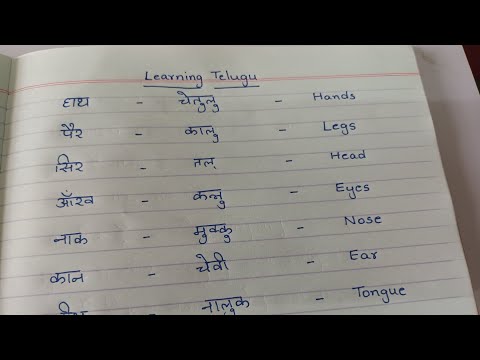 Learning Telugu
हाथ - चेतुलु - Hands
पैर - कालु - Legs
सिर - तल् - Head
आँख - कन्लु - Eyes
नाक - मुक्कु - Nose
कान - चेवी - Ear
- नालुक - Tongue